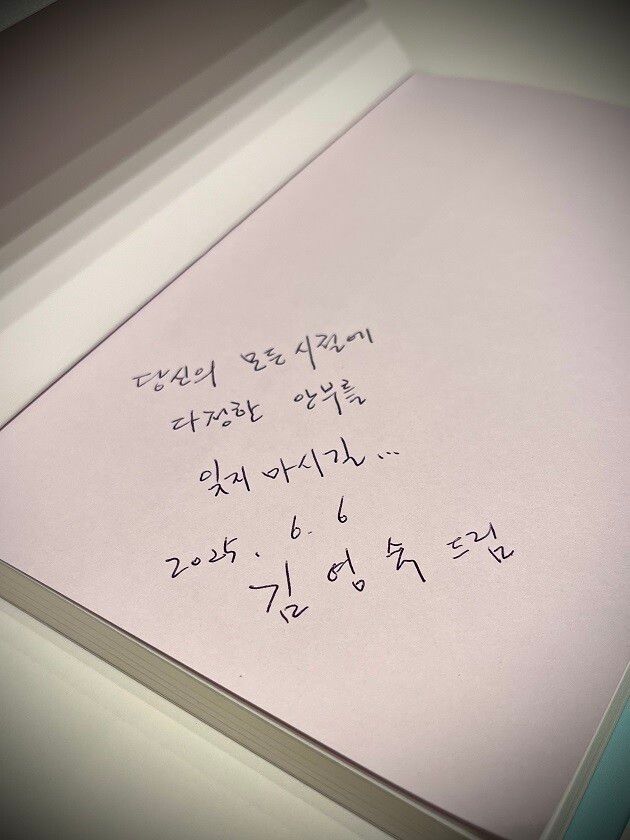 당신의 모든 시절에
다정한 안부를
잊지 마시길...
2025. 6. 6
김영숙 드림